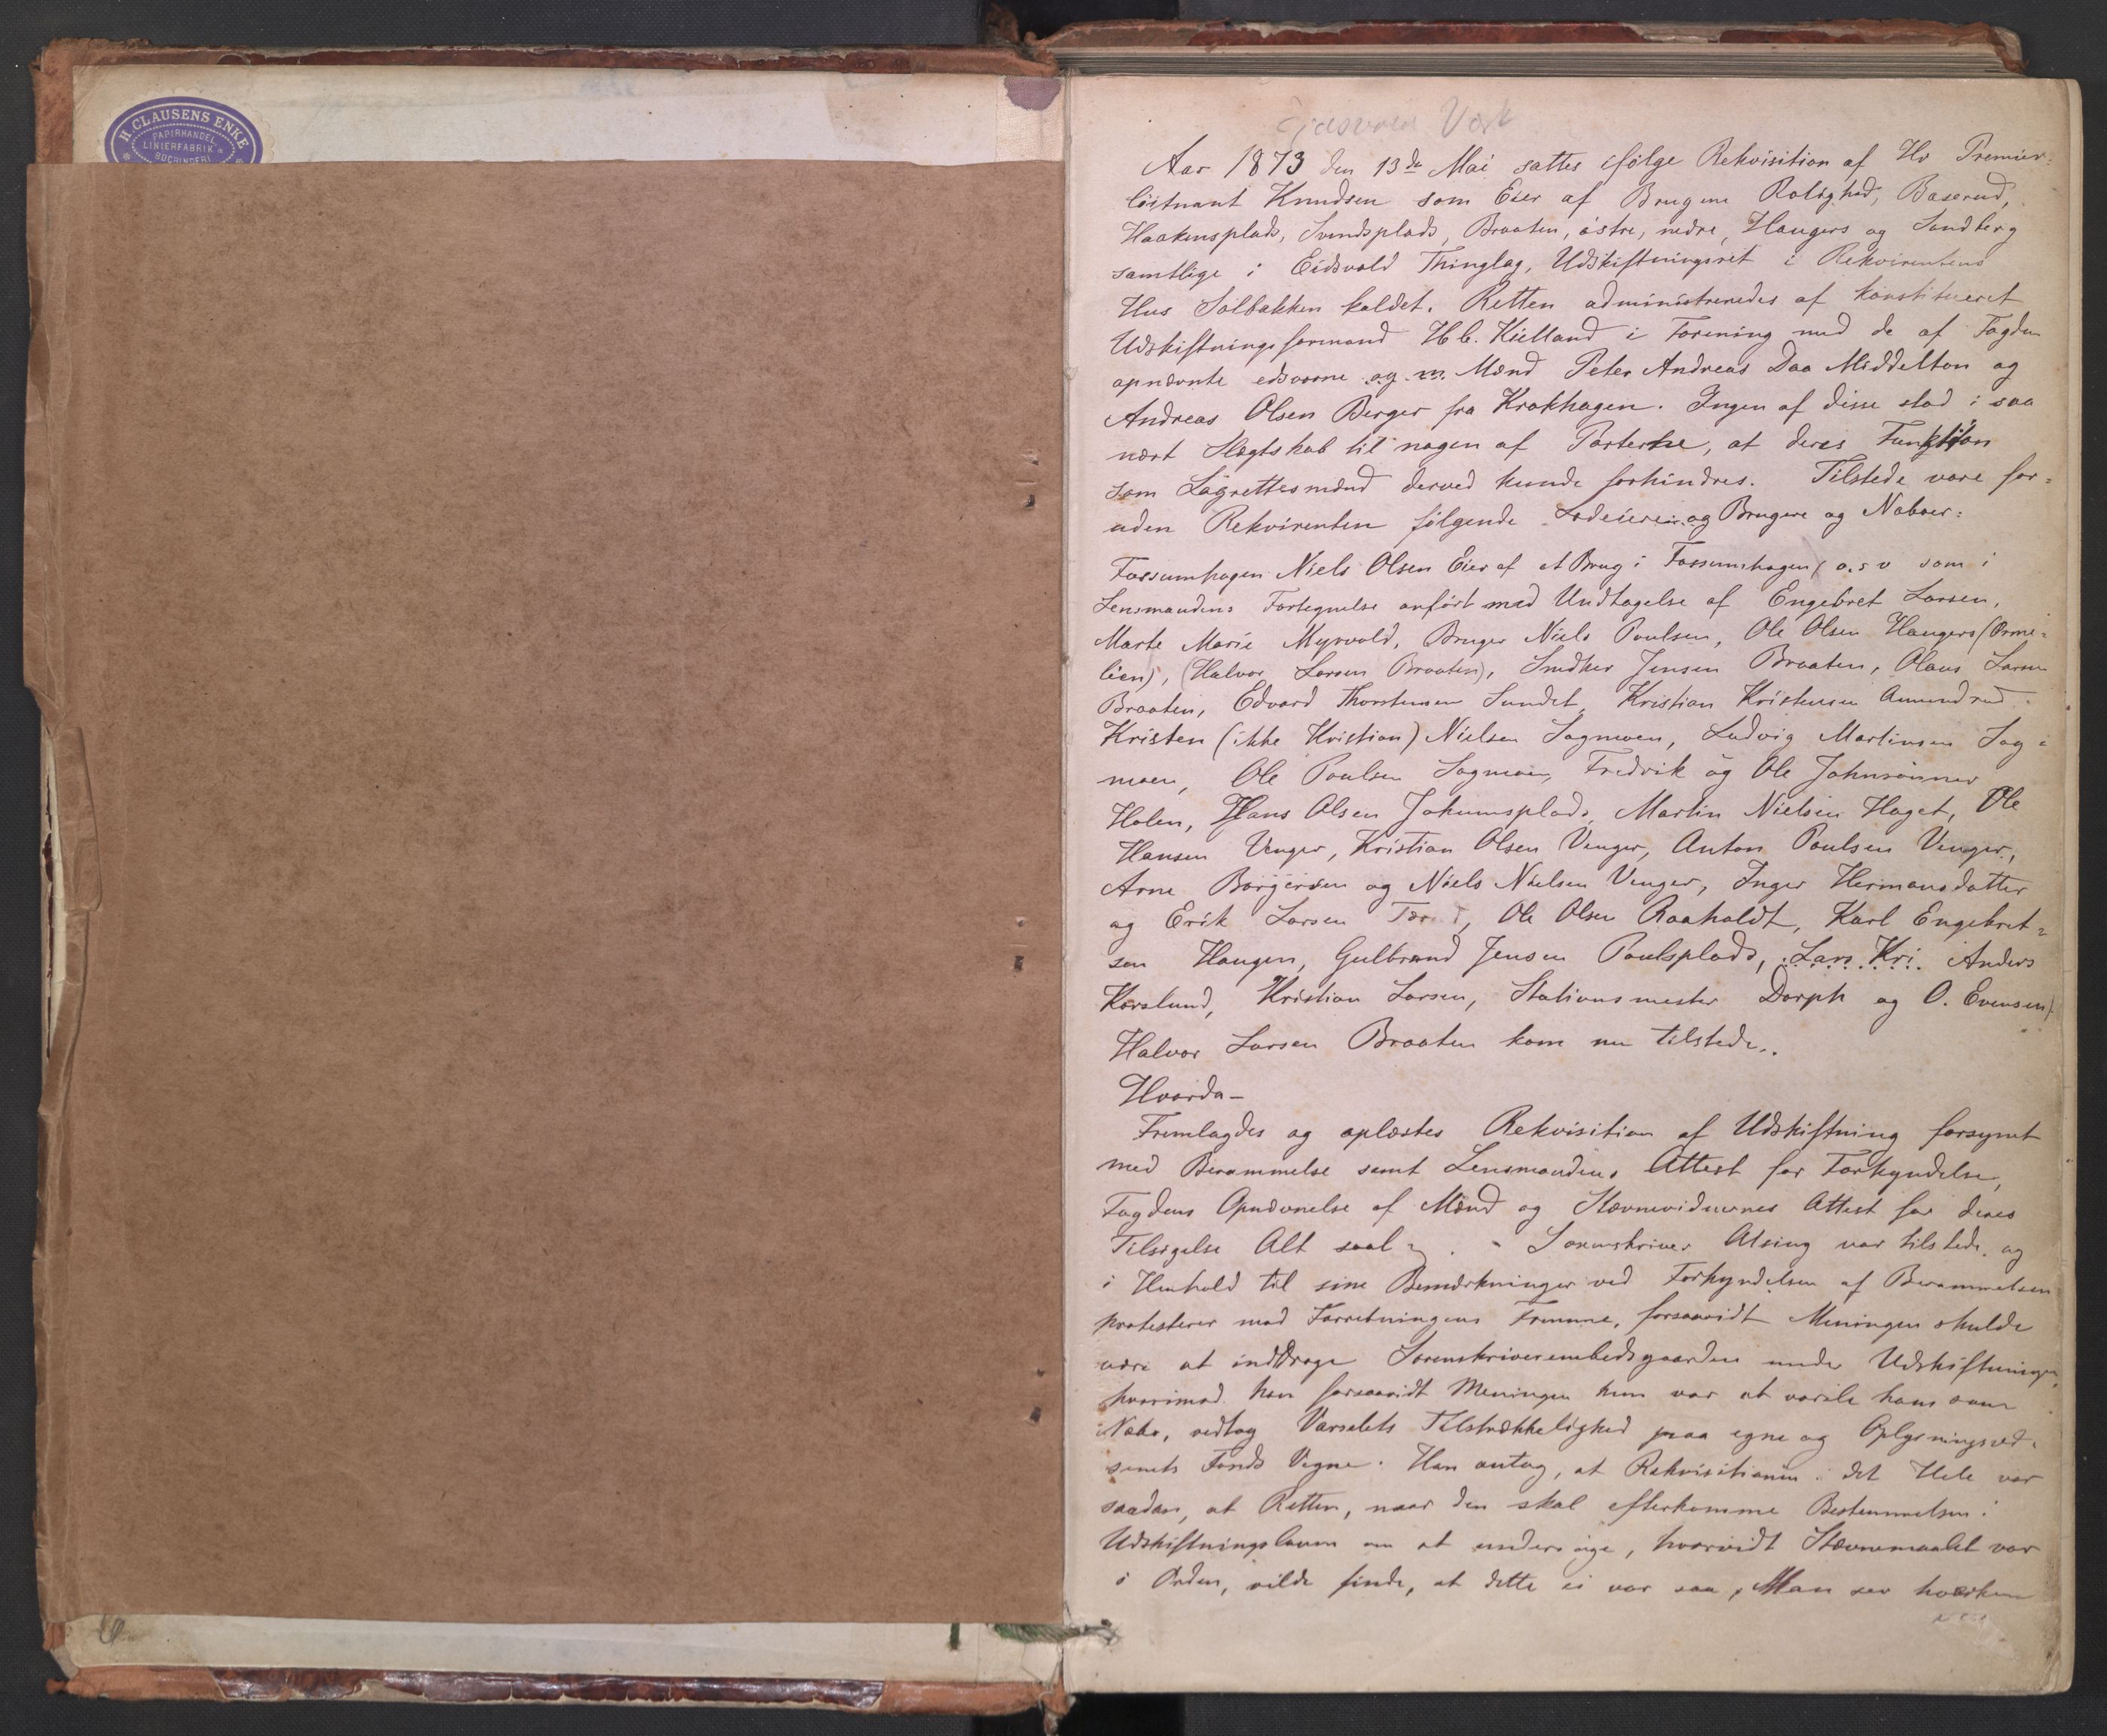 H. CLAUSENS ENKE
PAPIRHANDEL
LINIERFABRIK &
BOGBINDERI
Eidsvold Værk
Aar 1873 den 13de Mai sattes ifølge Rekvisition af Hr Premier-
løitnant Knudsen som Eier af Brugene Rolighed, Baserud,
Haakensplads, Svendsplads, Braaten, østre, nedre, Haugers og Sandberg
samtlige i Eidsvold Thinglag, Udskiftningsret i Rekvirentens
Hus Solbakken kaldet. Retten administreredes af konstitueret
Udskiftningsformand H C. Kielland i Forening med de af Fogden
opnævnte edsvorne og m. Mænd Peter Andreas Daa Middelton og
Andreas Olsen Berger fra Krokhagen. Ingen af disse stod i saa
nært Slægtskab til nogen af Parterne, at deres Funktion
som Lagrettesmænd derved kunde forhindres. Tilstede vare for-
uden Rekvirenten følgende Lodeiere og Brugere og Naboer:
Fossumhagen Niels Olsen Eier af et Brug i Fossumhagen (o.s v som i
Lensmandens Fortegnelse anført med Undtagelse af Engebret Larsen,
Marte Marie Myrvold, Bruger Niels Poulsen, Ole Olsen Haugers (Orme-
lien), (Halvor Larsen Braaten), Jensen Braaten, Olaus Larsen
Braaten, Edvard Thorstensen Sundet, Kristian Kristensen Amundrud
Kristen (ikke Kristian) Nielsen Sagmoen, Ludvig Martinsen Sag-
moen, Ole Poulsen Sagmoen, Fredrik og Ole Johnsønner
Holen, Hans Olsen Jokumsplads, Martin Nielsen Haget, Ole
Hansen Venger, Kristian Olsen Venger, Anton Poulsen Venger,
Arne Børgersen og Niels Nielsen Venger, Inger Hermansdatter
og Erik Larsen Ole Olsen Raaholdt, Karl Engebret-
sen Haugen, Gulbrand Jensen Poulsplads, Lars Kri Anders
Korslund, Kristian Larsen, Stationsmester Dorph og O. Evensen)
Halvor Larsen Braaten kom nu tilstede.
Hvorda-
Fremlagdes og oplæstes Rekvisition af Udskiftning forsynet
med Berammelse samt Lensmandens Attest for Forkyndelse,
Fogdens Opnævnelse af Mænd og Stævnevidnernes Attest for deres
Tilsigelse Alt saal . - Sorenskriver Alsing var tilstede og
i Henhold til sine Bemærkninger ved Forkyndelsen af Berammelsen
protesterer mod Forretningens Fremme, forsaavidt Meningen skulde
være at inddrage Sorenskriverembedsgaarden under Udskiftningen,
hvorimod han forsaavidt Meningen kun var at varsle ham som
Nabo, vedtog Varselets Tilstrækkelighed paa egne og Oplysningsvæ-
senets Fonds Vegne. Han antog, at Rekvisitionen i det Hele var
saadan, at Retten, naar den skal efterkomme Bestemmelsen i
Udskiftningsloven om at undersøge, hvorvidt Stævnemaalet var
i Orden, vilde finde, at dette ei var saa, Man ser hverken